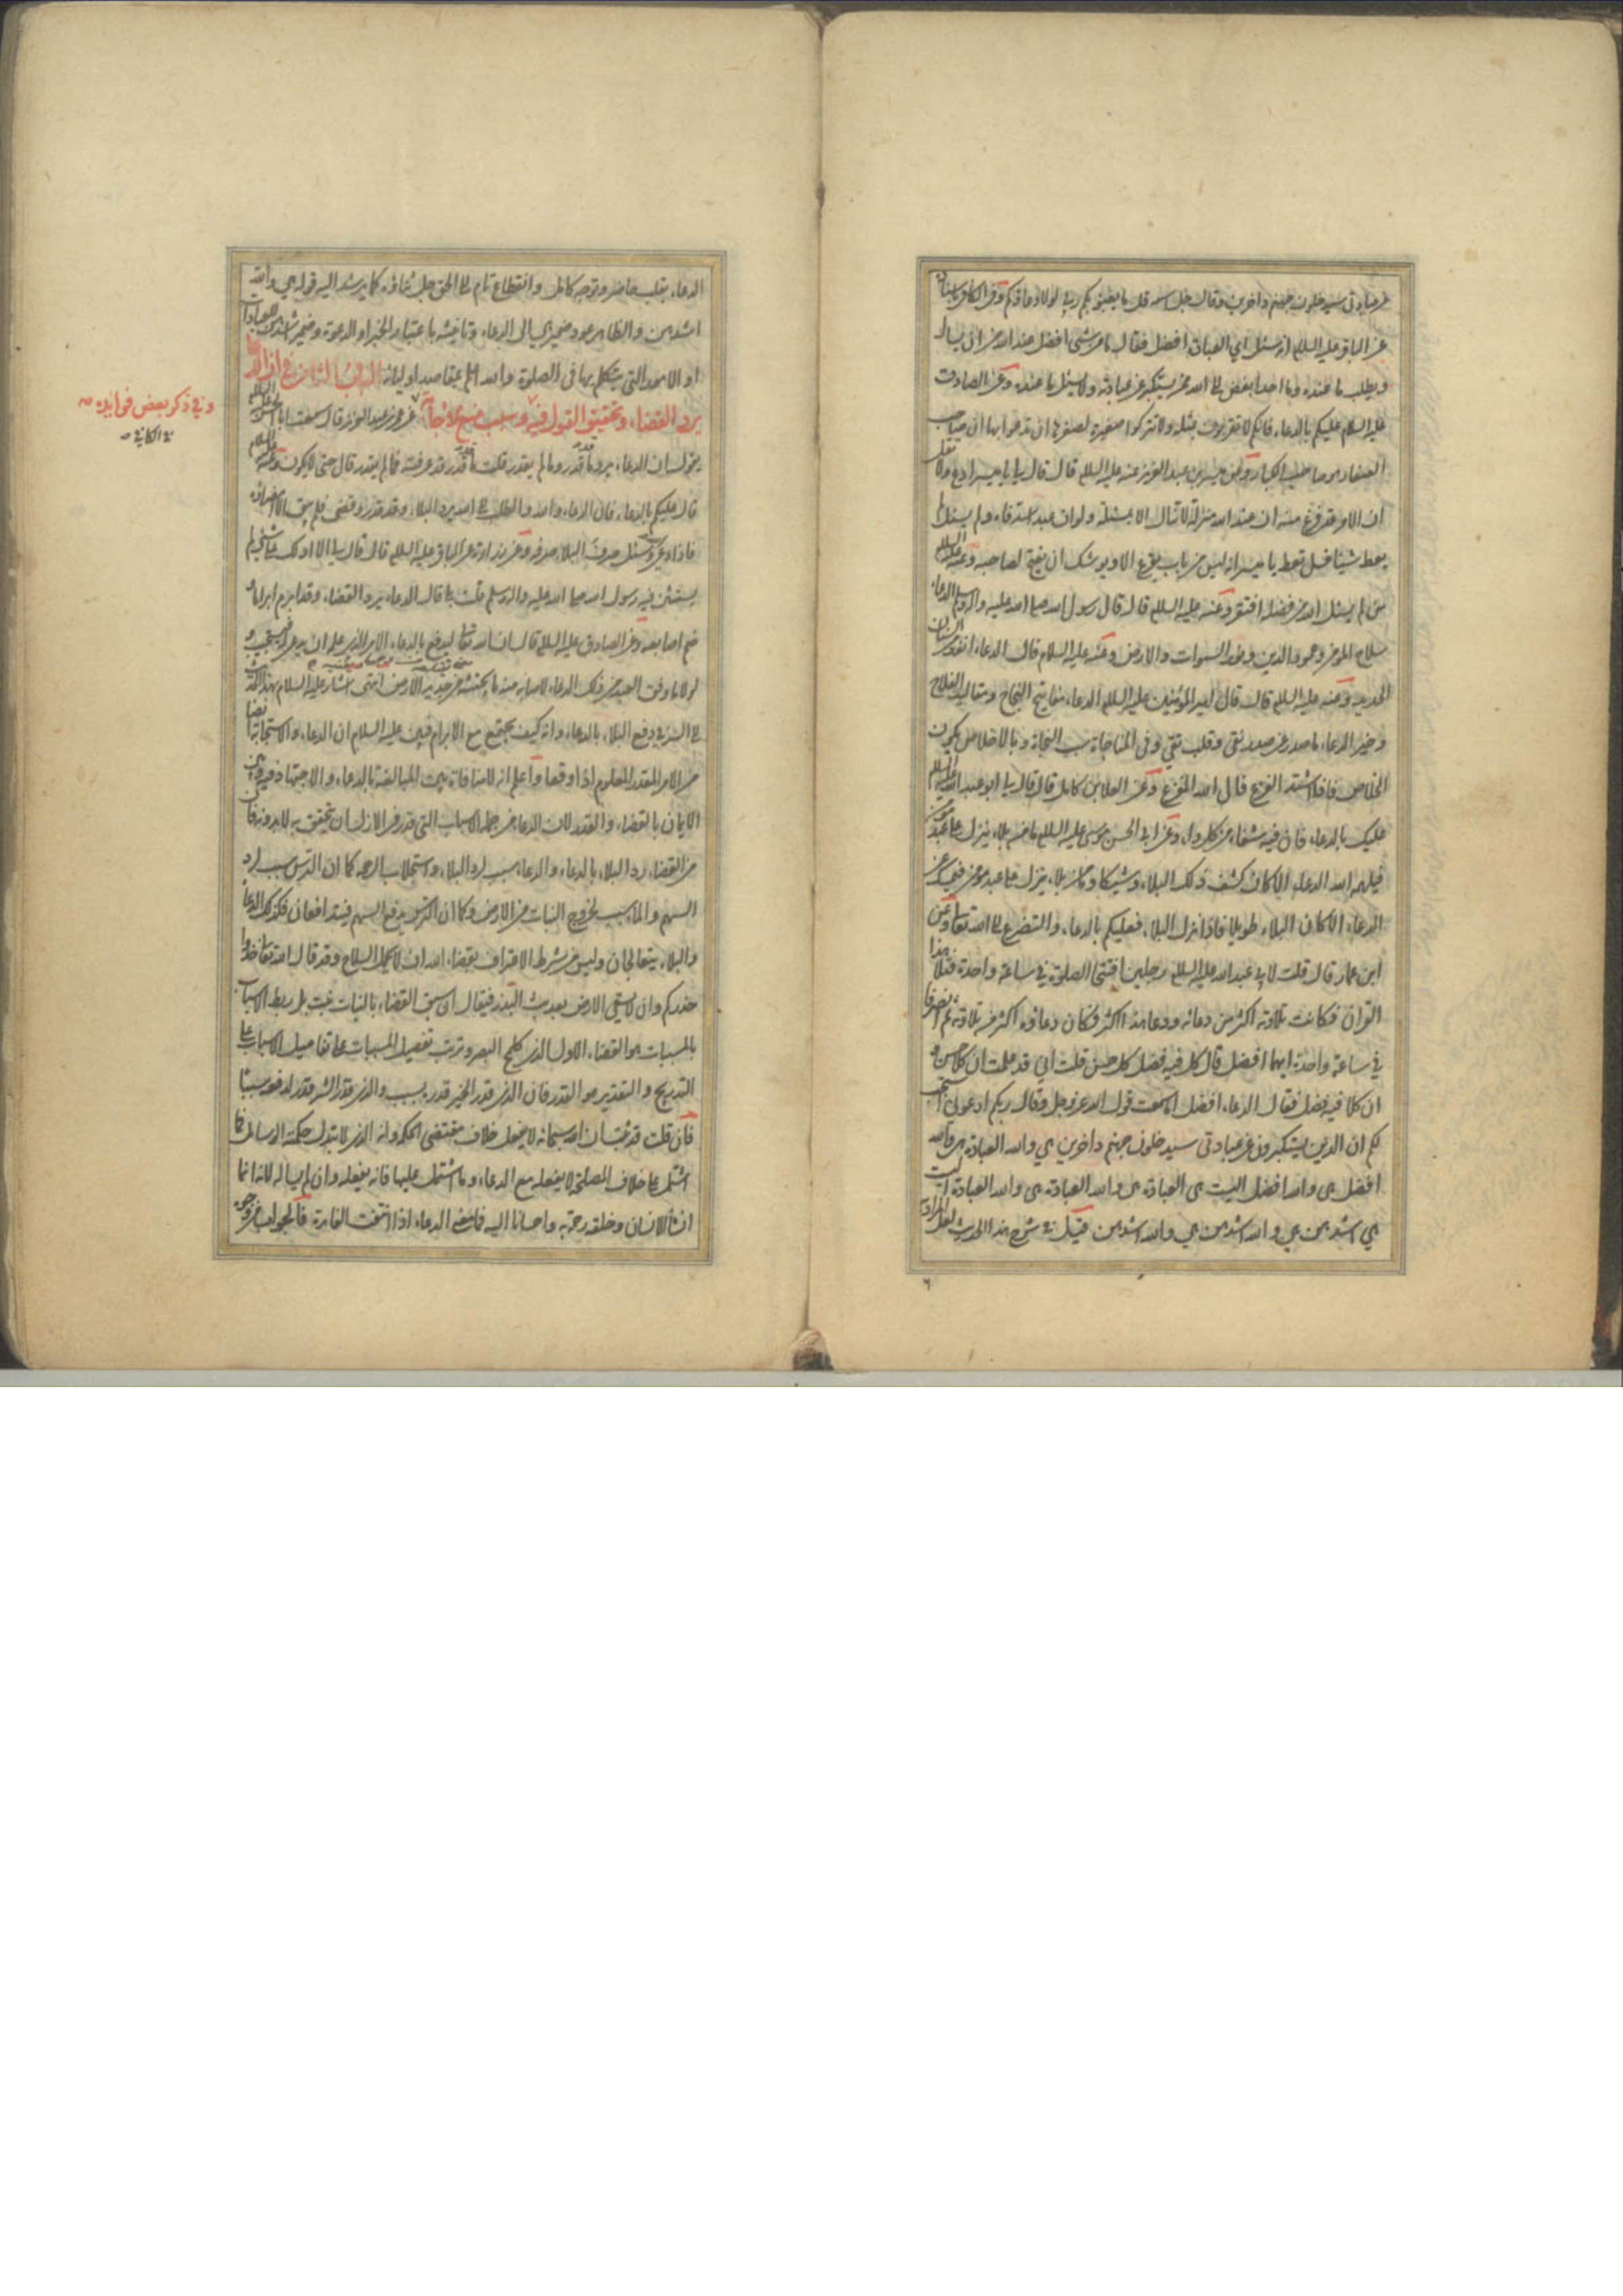 عن عبادتی سیدخلون جهنم داخرین وقال جل اسمه قل ما یعبؤ بکم ربی لولا دعاؤکم وفی الکافی
عن الباقر علیه السلام انه سئل ای العبادة افضل فقال ما من شئ افضل عند الله من ان یسال
ویطلب ما عنده وما احد ابغض الی الله ممن یستکبر عن عبادته ولا یسئل ما عنده وعن الصادق
علیه السلام علیکم بالدعاء فانکم لا تقربون بمثله ولا تترکوا صغیرة لصغرها ان تدعوا بها ان صاحب
الصغار هو صاحب الکبار وعن میسر بن عبد العزیز عنه علیه السلام قال قال لی یا میسر ادع ولا تقل
ان الامر قد فرغ منه ان عند الله منزلة لا تنال الا بمسئلة ولو ان عبدا سد فاه ولم یسئل لم
یعط شیئا فسل تعط یا میسر انه لیس من باب یقرع الا ویوشک ان یفتح لصاحبه وعنه علیه السلام
من لم یسئل الله من فضله افتقر وعنه علیه السلام قال قال رسول الله صلی الله علیه واله وسلم الدعاء
سلاح المؤمن وعمود الدین ونور السموات والارض وعنه علیه السلام قال الدعاء انفذ من السنان
الحدید وعنه علیه السلام قال قال امیر المؤمنین علیه السلام الدعاء مفاتیح النجاح ومقالید الفلاح
وخیر الدعاء ما صدر عن صدر نقی وقلب تقی وفی المناجاة سبب النجاة وبالاخلاص یکون
الخلاص فاذا اشتد الفزع فالی الله المفزع وعن العلا بن کامل قال قال لی ابو عبد الله علیه السلام
علیک بالدعاء فان فیه شفاء من کل داء وعن ابی الحسن موسی علیه السلام ما من بلاء ینزل علی عبد مؤمن
فیلهمه الله الدعاء الا کان کشف ذلک البلاء وشیکا وما من بلاء ینزل علی عبد مؤمن فیمسک عن
الدعاء الا کان البلاء طویلا فاذا نزل البلاء فعلیکم بالدعاء والتضرع الی الله تعالی وعن
ابن عمار قال قلت لابی عبد الله علیه السلام رجلین افتتحا الصلوة فی ساعة واحدة فتلا هذا
القران فکانت تلاوته اکثر من دعائه ودعا هذا اکثر فکان دعاؤه اکثر من تلاوته ثم انصرفا
فی ساعة واحدة ایهما افضل قال کل فیه فضل کل حسن قلت انی قد علمت ان کلا حسن و
ان کلا فیه فضل فقال الدعاء افضل اما سمعت قول الله عز وجل وقال ربکم ادعونی استجب
لکم ان الذین یستکبرون عن عبادتی سیدخلون جهنم داخرین هی والله العبادة هی والله
افضل هی والله افضل الیست هی العبادة هی والله العبادة هی والله العبادة الیست
هی اشدهن هی والله اشدهن هی والله اشدهن قیل فی شرح هذا الحدیث لعل المراد
الدعاء بقلب حاضر وتوجه کامل وانقطاع تام الی الحق جل شاؤه کما یرشد الیه قوله هی والله
اشدهن والظاهر عود ضمیر هی الی الدعاء وتانیثه باعتبار الخبر او الدعوة وضمیر اشدهن الی العبادات
او الامور التی یتکلم بها فی الصلوة والله اعلم بمقاصد اولیائه الباب الثانی فی ان الدعاء
یرد القضاء وتحقیق القول فیه وسبب منع الاجابة عن عمر بن عبد العزیز قال سمعت ابا الحسن علیه السلام
یقول ان الدعاء یرد ما قدر وما لم یقدر قلت ما قدر قد عرفته فما لم یقدر قال حتی لا یکون وعنه علیه السلام
قال علیکم بالدعاء فان الدعاء والله والطلب الی الله یرد البلاء وقد قدر وقضی فلم یبق الا امضاؤه
فاذا دعی وسئل صرف البلاء صرفه وعن زرارة عن الباقر علیه السلام قال قال لی الا ادلک علی شئ لم
یستثن فیه رسول الله صلی الله علیه واله وسلم قلت بلی قال الدعاء یرد القضاء وقد ابرم ابراما و
ضم اصابعه وعن الصادق علیه السلام قال ان الله تعالی لیدفع بالدعاء الامر الذی علمه ان یدعی له فیستجیب و
لولا ما وفق العبد من ذلک الدعاء لاصابه منه ما یجتثه من جدید الارض انتهی اشار علیه السلام بهذا الحدیث
الی السر فی دفع البلاء بالدعاء وانه کیف یجتمع مع الابرام فبین علیه السلام ان الدعاء والاستجابة ایضا
من الامر المقدر المعلوم اذا وقعا واعلم انه لا منافاة بین المبالغة بالدعاء والاجتهاد فیه وبین
الایمان بالقضاء والقدر لان الدعاء من جملة الاسباب التی قدر فی الازل ان تحقق به لا بدونه فان
من القضاء رد البلاء بالدعاء والدعاء سبب لرد البلاء واستجلاب الرحمة کما ان الترس سبب لرد
السهم والماء سبب لخروج النبات من الارض وکما ان الترس یدفع السهم فیتدافعان فکذلک الدعاء
والبلاء یتعالجان ولیس من شرط الاعتراف بقضاء الله ان لا یحمل السلاح وقد قال الله تعالی خذوا
حذرکم وان لا یسقی الارض بعد بث البذر فیقال ان سبق القضاء بالنبات نبت بل ربط الاسباب
بالمسببات هو القضاء الاول الذی کلمح البصر وترتب تفصیل المسببات علی تفاصیل الاسباب علی
التدریج والتقدیر هو القدر فان الذی قدر الخیر قدره بسبب والذی قدر الشر قدر لدفعه سببا
فان قلت قد ثبت ان الله سبحانه لا یفعل خلاف مقتضی الحکمة وانه الذی لا تبدل حکمته الوسائل فما
اشتمل علی خلاف المصلحة لا یفعله مع الدعاء وما اشتمل علیها فانه یفعله وان لم یساله لانه انما
انشأ الانسان وخلقه رحمة به واحسانا الیه فما معنی الدعاء اذا انتفت الفایدة فالجواب من وجوه
وفی ذکر بعض فوایده